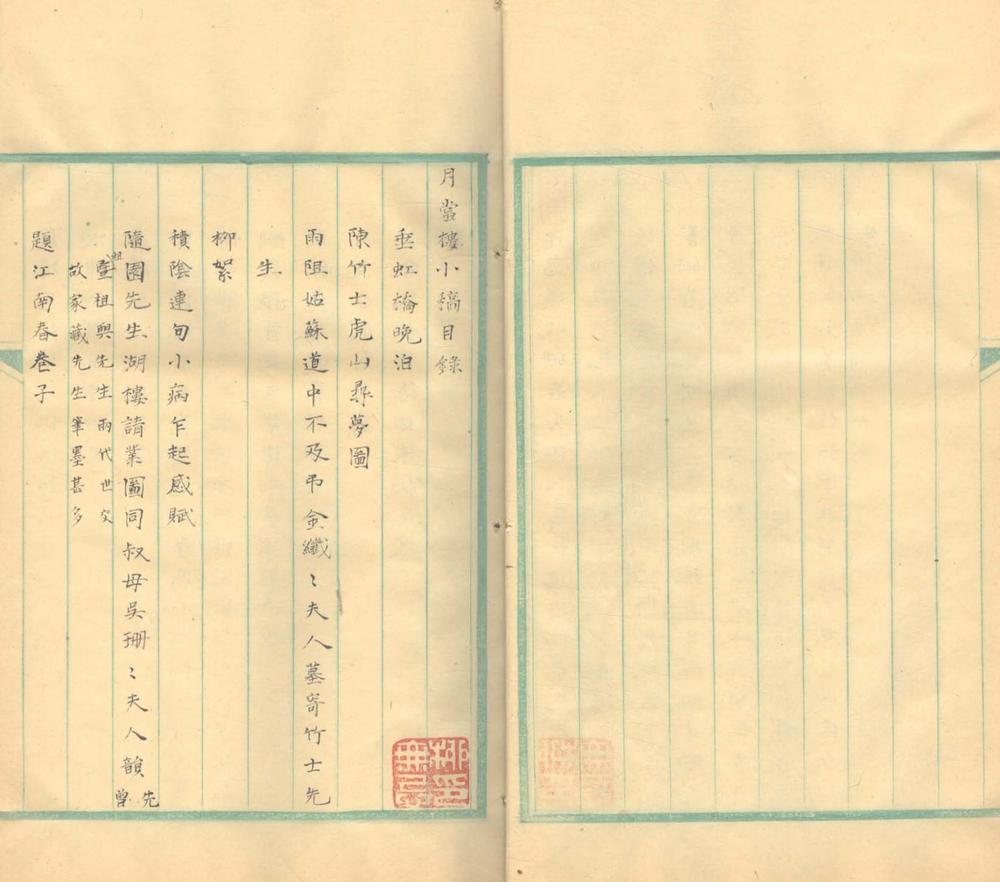 月當樓小稿目錄
垂虹橋晚泊
陳竹士虎山尋夢圖
雨阻姑蘇道中不及弔金纖〻夫人墓寄竹士先
生
柳絮
積陰連旬小病乍起感賦
隨園先生湖樓請業圖同叔母吳珊〻夫人韻先曾
祖暨祖與先生兩代世交
故家藏先生筆墨甚多
題江南春卷子